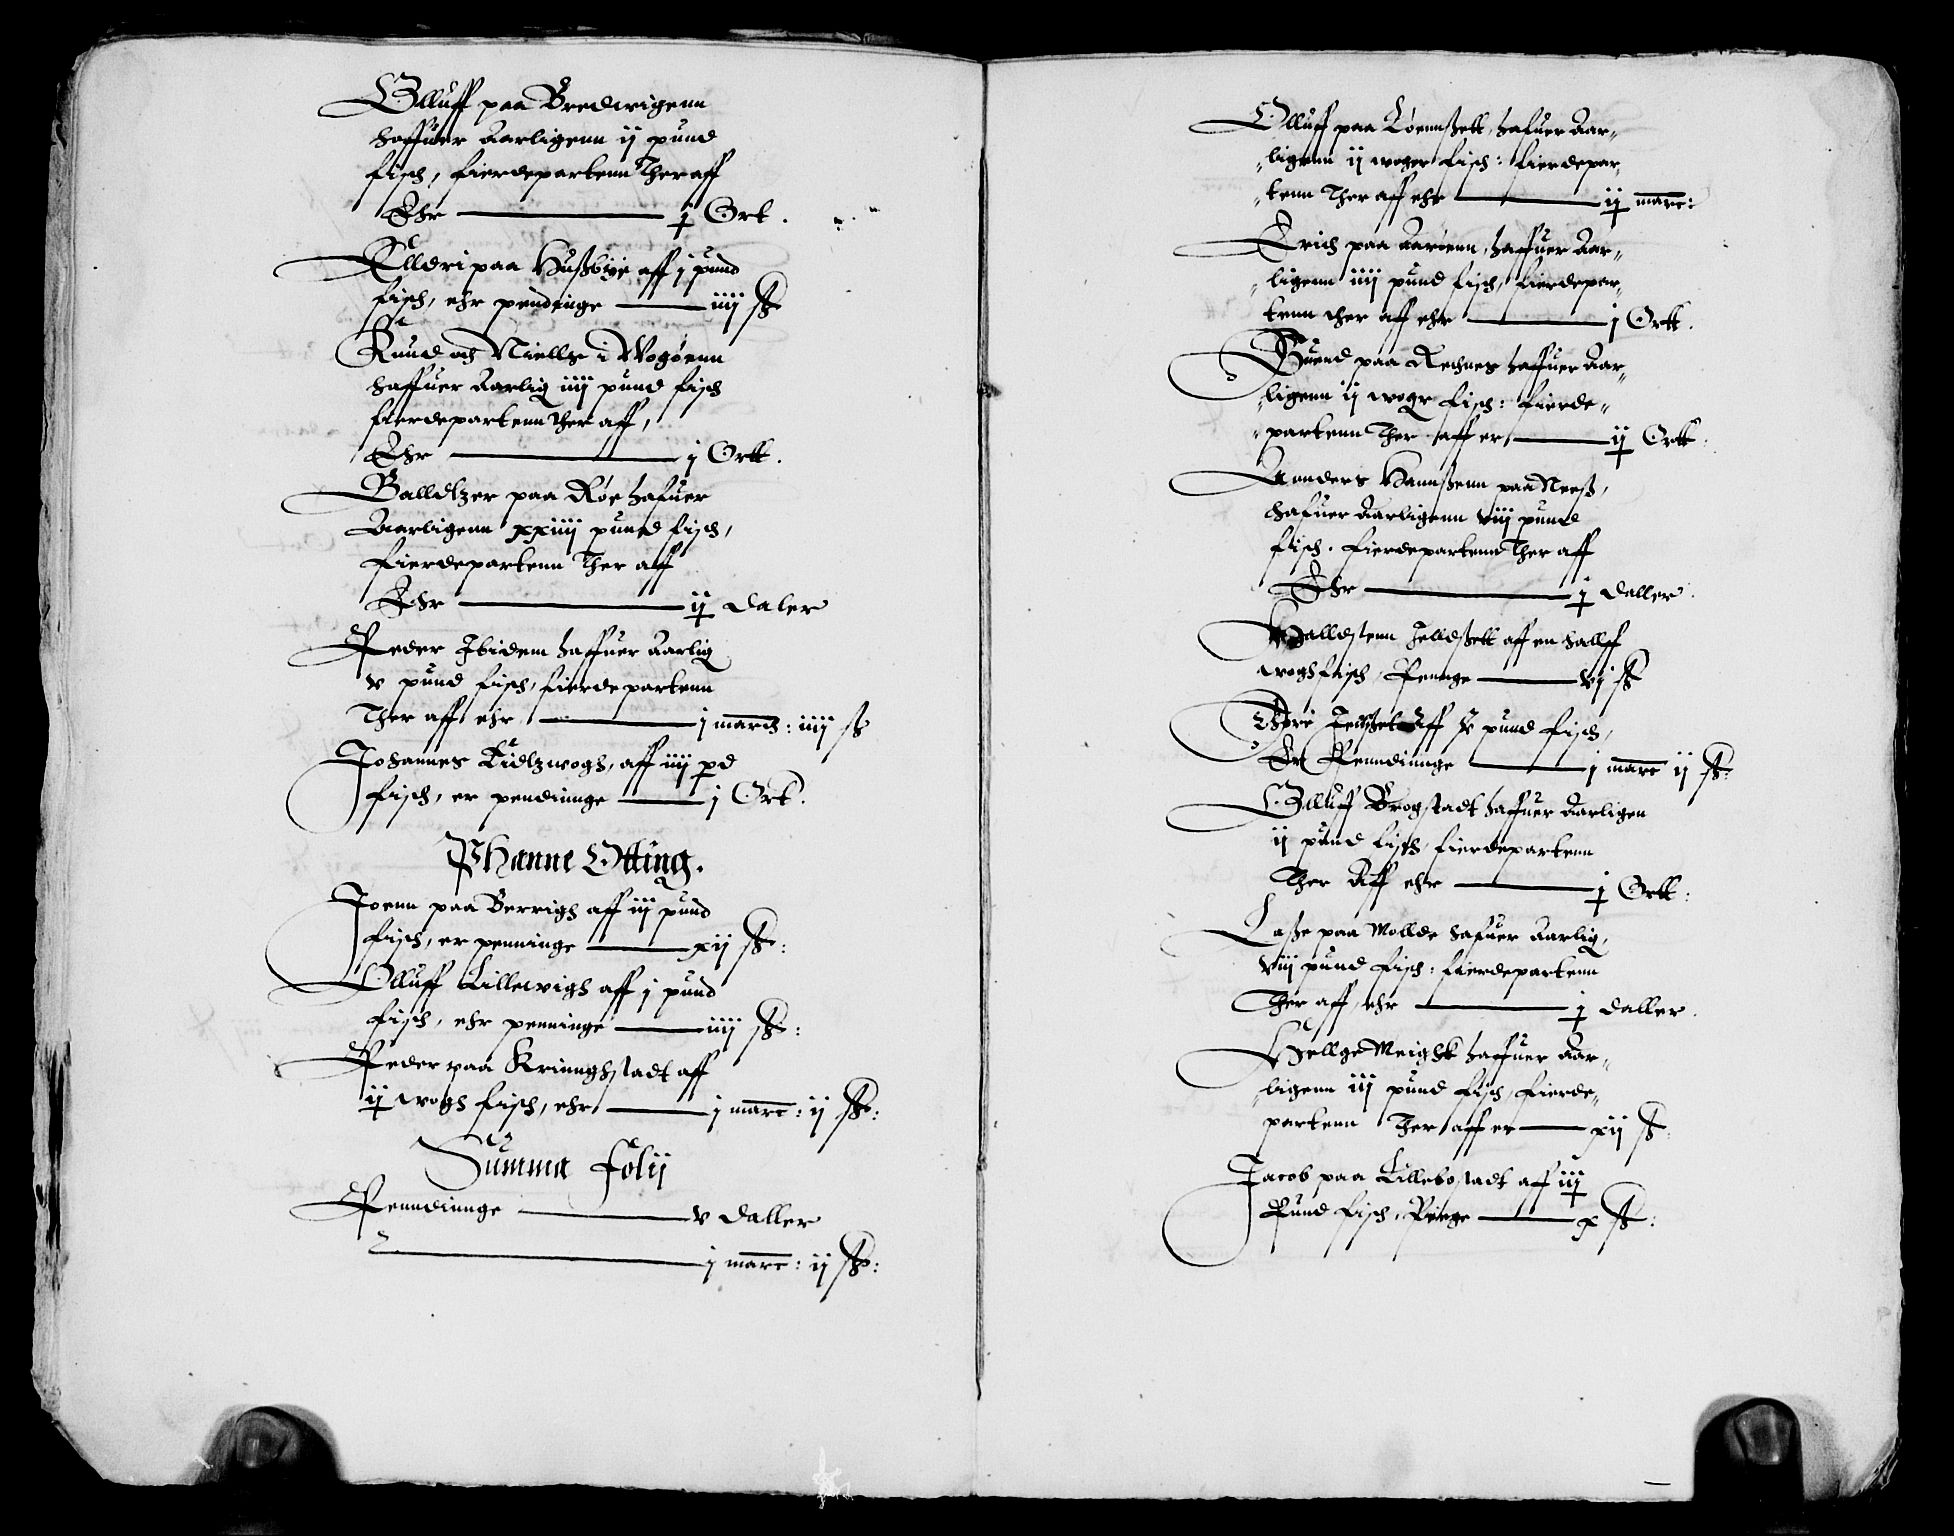 Olluff paa Bredwigenn
haffuer Aarligenn ij pund
fisch, fierdepartenn Ther aff
Ehr ——— j Ort.
Elldri paa Hußbije aff j pund
fisch, ehr pendinge ——— iiij ß
Knud och Niellß i Wogöenn
haffuer Aarlig iiij pund fisch
fierdepartenn ther aff,
Ehr ——— j Ortt.
Balldtzer paa Röe hafuer
Aarligenn xxiiij pund fisch,
fierdepartenn Ther aff
Ehr ——— ij daler
Peder Ibidem haffuer Aarlig
v pund fisch, fierdepartenn
Ther aff ehr ——— j march: iiij ß
Johannes Tidlzwogh, aff iiij pd
fisch, er pendinnge ——— j Ort.
Phanne Otting.
Joenn paa Berrigh aff iij pund
fisch, er penninge ——— xij ß:
Olluff Lillewigh aff j pund
fisch, ehr penninge ——— iiij ß:
Peder paa Krinnghstadt aff
ij wogh fisch, ehr ——— j marc: ij ß:
Summa Folij
Penndinnge ——— v daller
——— j marc: ij ß:
Olluff paa Löennßett, hafuer Aar„
„ligenn ij woger fisch: fierdepar„
„tenn Ther aff ehr ——— ij marc:
Erich paa Aaröenn, haffuer Aar„
„ligenn iiij pund fisch, fierdepar„
tenn ther aff ehr ——— j Ortt.
Suend paa Rechnes haffuer Aar„
„ligenn ij wogr fisch: fierde„
„partenn Ther aff er ——— ij Ortt.
Annders Hannßenn paa Neeß,
hafuer Aarligenn viij pund
fisch. fierdepartenn Ther aff
Ehr ——— j daller.
Halldstenn Jelldßett aff en hallff
wogh fisch, Pennge ——— vj ß
Jellßet Aff v pund fisch,
Er Penndinnge ——— j marc ij ß:
Olluff Brogstadt haffuer Aarligen
ij pund fisch, fierdepartenn
Ther Aff ehr ——— j Ortt:
Laße paa Mollde hafuer Aarlig,
viij pund fisch: fierdepartenn
Ther aff, ehr ——— j daller.
Hellge Meighk haffuer Aar„
„ligenn iij pund fisch, fierde„
partenn Ther aff er ——— xij ß.
Jacob paa Lillebostadt aff iij
Pund fisch, Penge ——— x ß: